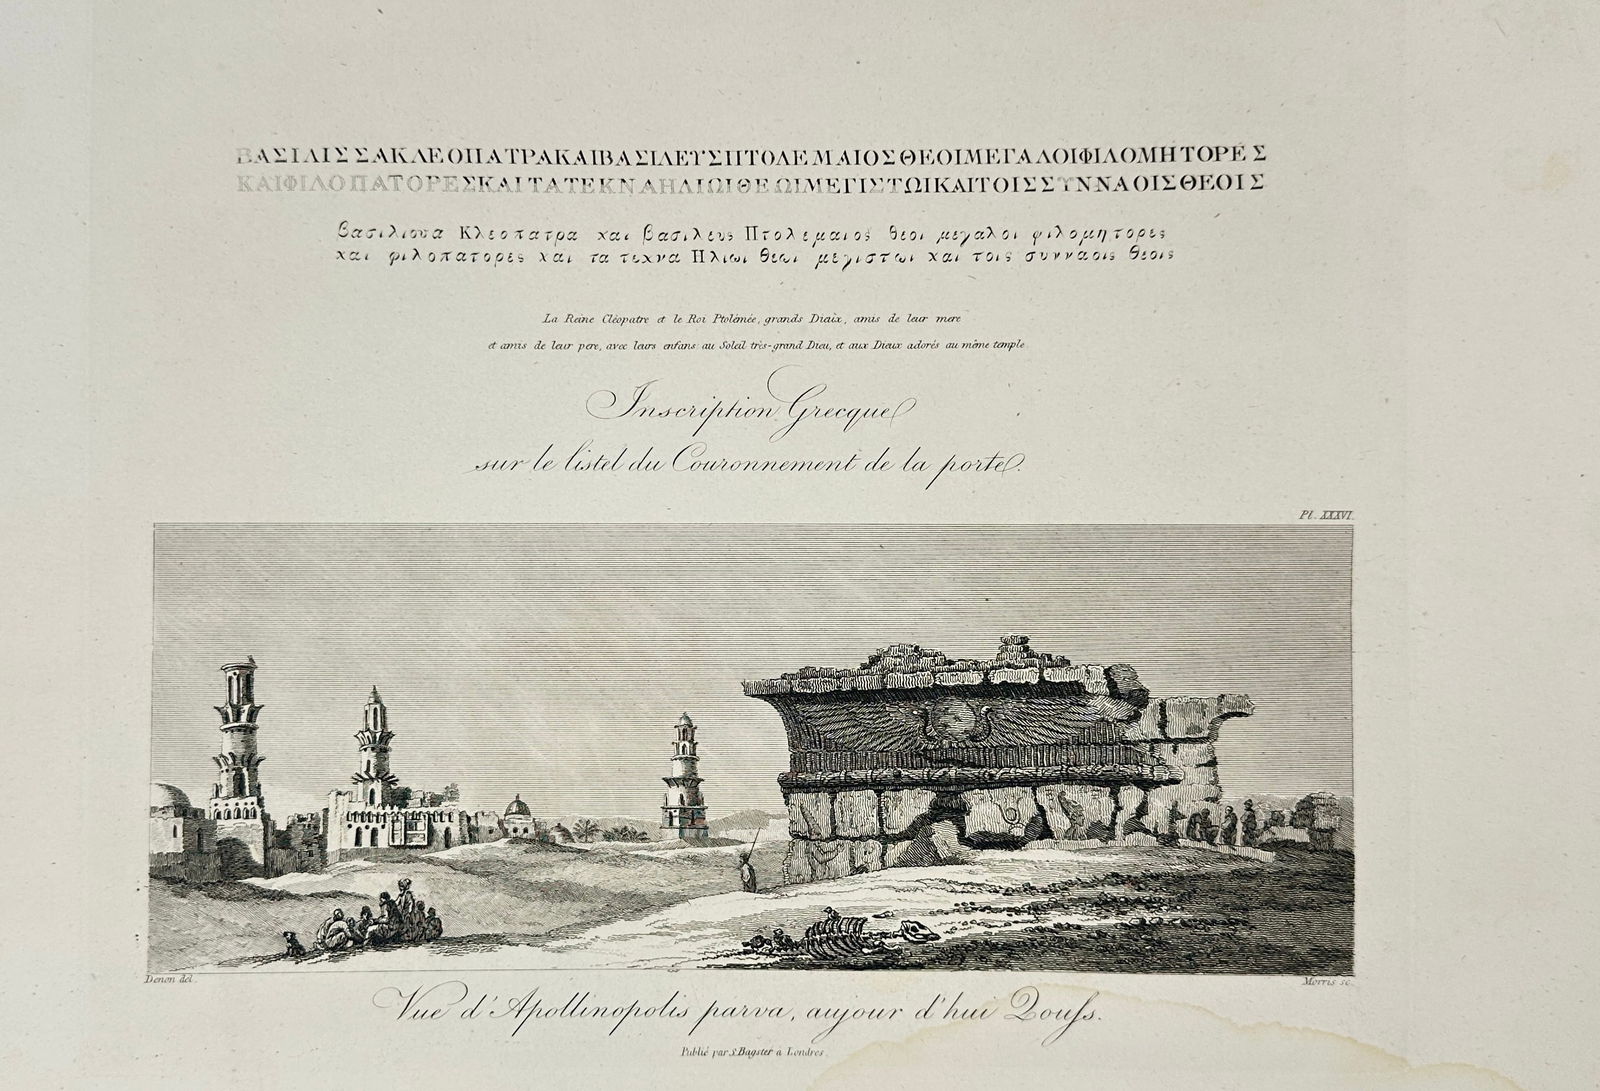 ΒΑΣΙΛΙΣΣΑΚΛΕΟΠΑΤΡΑΚΑΙΒΑΣΙΛΕΥΣΠΤΟΛΕΜΑΙΟΣΘΕΟΙΜΕΓΑΛΟΙΦΙΛΟΜΗΤΟΡΕΣ
ΚΑΙΦΙΛΟΠΑΤΟΡΕΣΚΑΙΤΑΤΕΚΝΑΗΛΙΩΙΘΕΩΙΜΕΓΙΣΤΩΙΚΑΙΤΟΙΣΣΥΝΝΑΟΙΣΘΕΟΙΣ
βασιλισσα Κλεοπατρα και βασιλευς Πτολεμαιος θεοι μεγαλοι φιλομητορες
και φιλοπατορες και τα τεκνα Ηλιωι θεωι μεγιστωι και τοις συνναοις θεοις
La Reine Cléopatre et le Roi Ptolémée, grands Dieux, amis de leur mere
et amis de leur pere, avec leurs enfans: au Soleil très-grand Dieu, et aux Dieux adorés au même temple
Inscription Grecque
sur le listel du Couronnement de la porte.
Pl. XXXVI.
Denon del.
Morris sc.
Vue d'Apollinopolis parva, aujour d'hui Qouss.
Publié par S. Bagster à Londres.